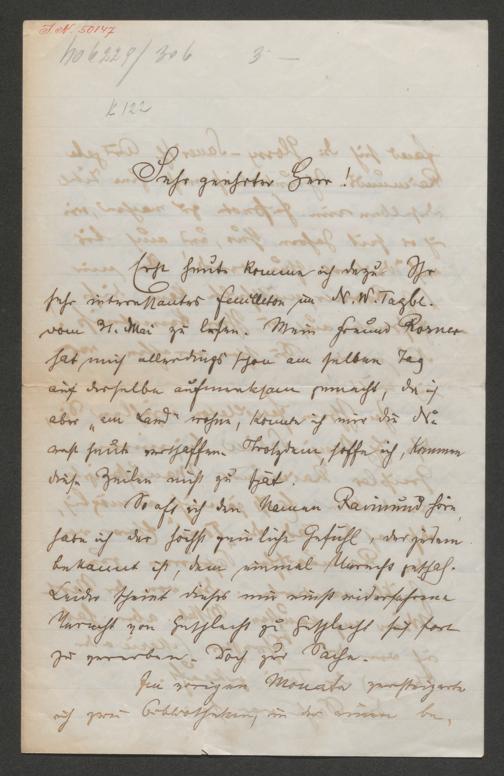 I.N. 50147
3 —
Sehr geehrter Herr!
Erst heute komme ich dazu Ihr
sehr interessantes Feuilleton im N. W. Tagbl.
vom 31. Mai zu lesen. Mein Freund Rosner
hat mich allerdings schon am selben Tag
auf dasselbe aufmerksam gemacht, da ich
aber „am Land“ wohne, konnte ich mir die Nr
erst heute verschaffen. Trotzdem, hoffe ich, kommen
diese Zeilen nicht zu spät.
So oft ich den Namen Raimund höre,
habe ich das höchst peinliche Gefühl, das jedem
bekannt ist, dem einmal Unrecht geschah.
Leider scheint dieses mir einst widerfahrene
Unrecht von Geschlecht zu Geschlecht sich fort
zu vererben. Doch zur Sache.
Im vorigen Monate versteigerte
ich zwei Bibliotheken, in der einen be-